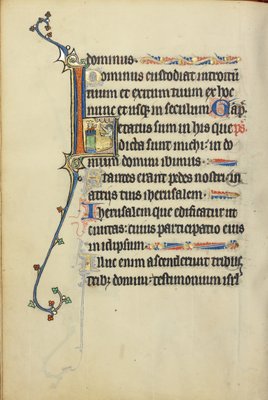 dominus.
Dominus custodiat introitũ
tuum et exitum tuum ex hoc
nunc et usq; in seculum. Gła p̃.
Letatus sum in his que ps̃
dicta sunt michi: in do
mum domini ibimus.
Stantes erant pedes nostri: in
atriis tuis iherusalem.
Iherusalem que edificatur ut
ciuitas: cuius participatio eius
in idipsum.
Illuc enim ascenderunt tribus
tribꝫ domini: testimonium isrl̃